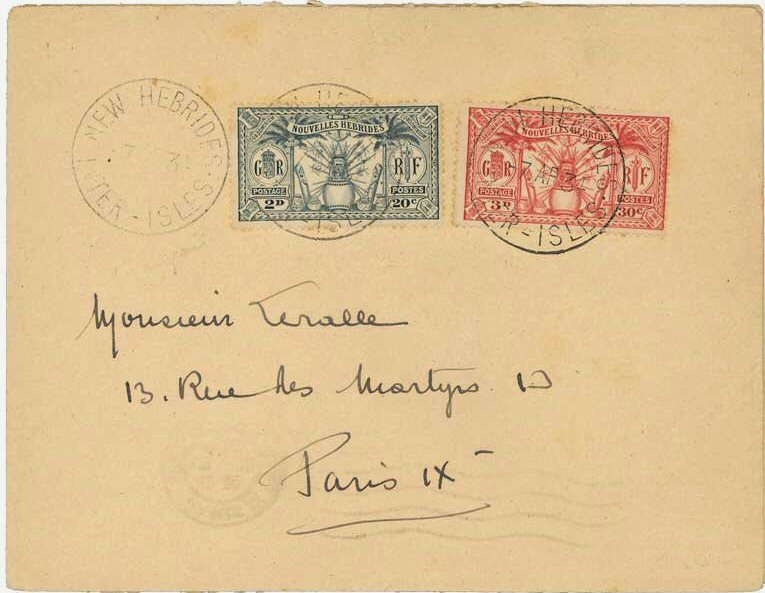 NEW HEBRIDES
INTER-ISLES
NOUVELLES HEBRIDES
G R
R F
POSTAGE
POSTES
2D
20c
NOUVELLES HEBRIDES
G R
R F
POSTAGE
POSTES
3D
30c
7 AP 3
INTER-ISLES
Monsieur
13. Rue des Martyrs
Paris IX